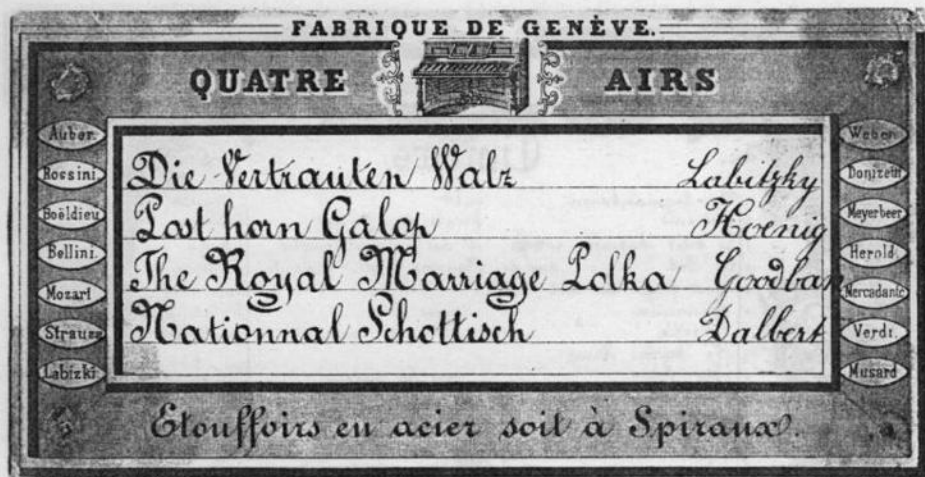 FABRIQUE DE GENÈVE.
QUATRE AIRS
Auber.
Rossini.
Boëldieu
Bellini.
Mozart
Strauss
Labizki.
Die Vertrauten Walz Labitzky
Post horn Galop Koenig
The Royal Marriage Polka Goodban
Nationnal Schottisch Dalbert
Weber.
Donizetti
Meyerbeer
Herold.
Mercadante
Verdi.
Musard
Etouffoirs en acier soit à Spiraux.